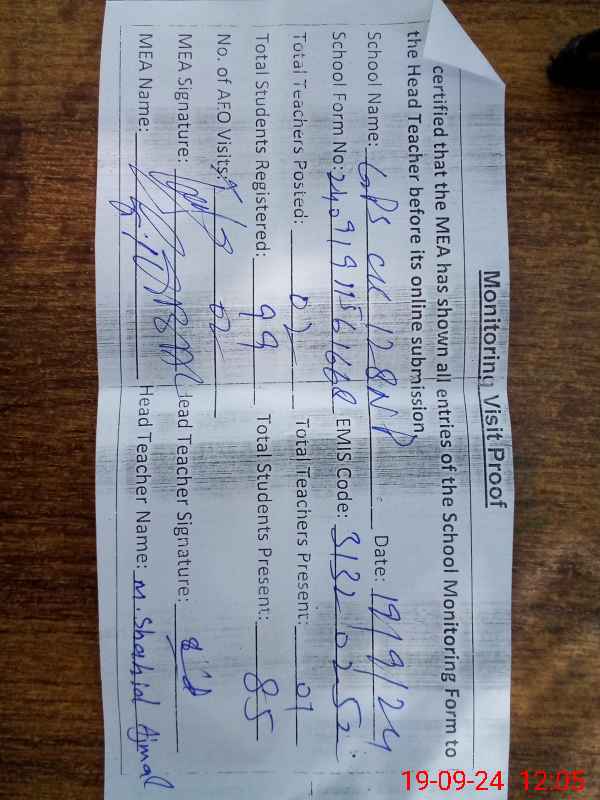 Monitoring Visit Proof
certified that the MEA has shown all entries of the School Monitoring Form to
the Head Teacher before its online submission
School Name: GPS CK 128NP Date: 19/9/24
School Form No: EMIS Code: 31320252
Total Teachers Posted: 02 Total Teachers Present: 01
Total Students Registered: 99 Total Students Present: 85
No. of AEO Visits: 02
MEA Signature: Head Teacher Signature:
MEA Name: Head Teacher Name: M. Shahid Ajmal
19-09-24 12:05